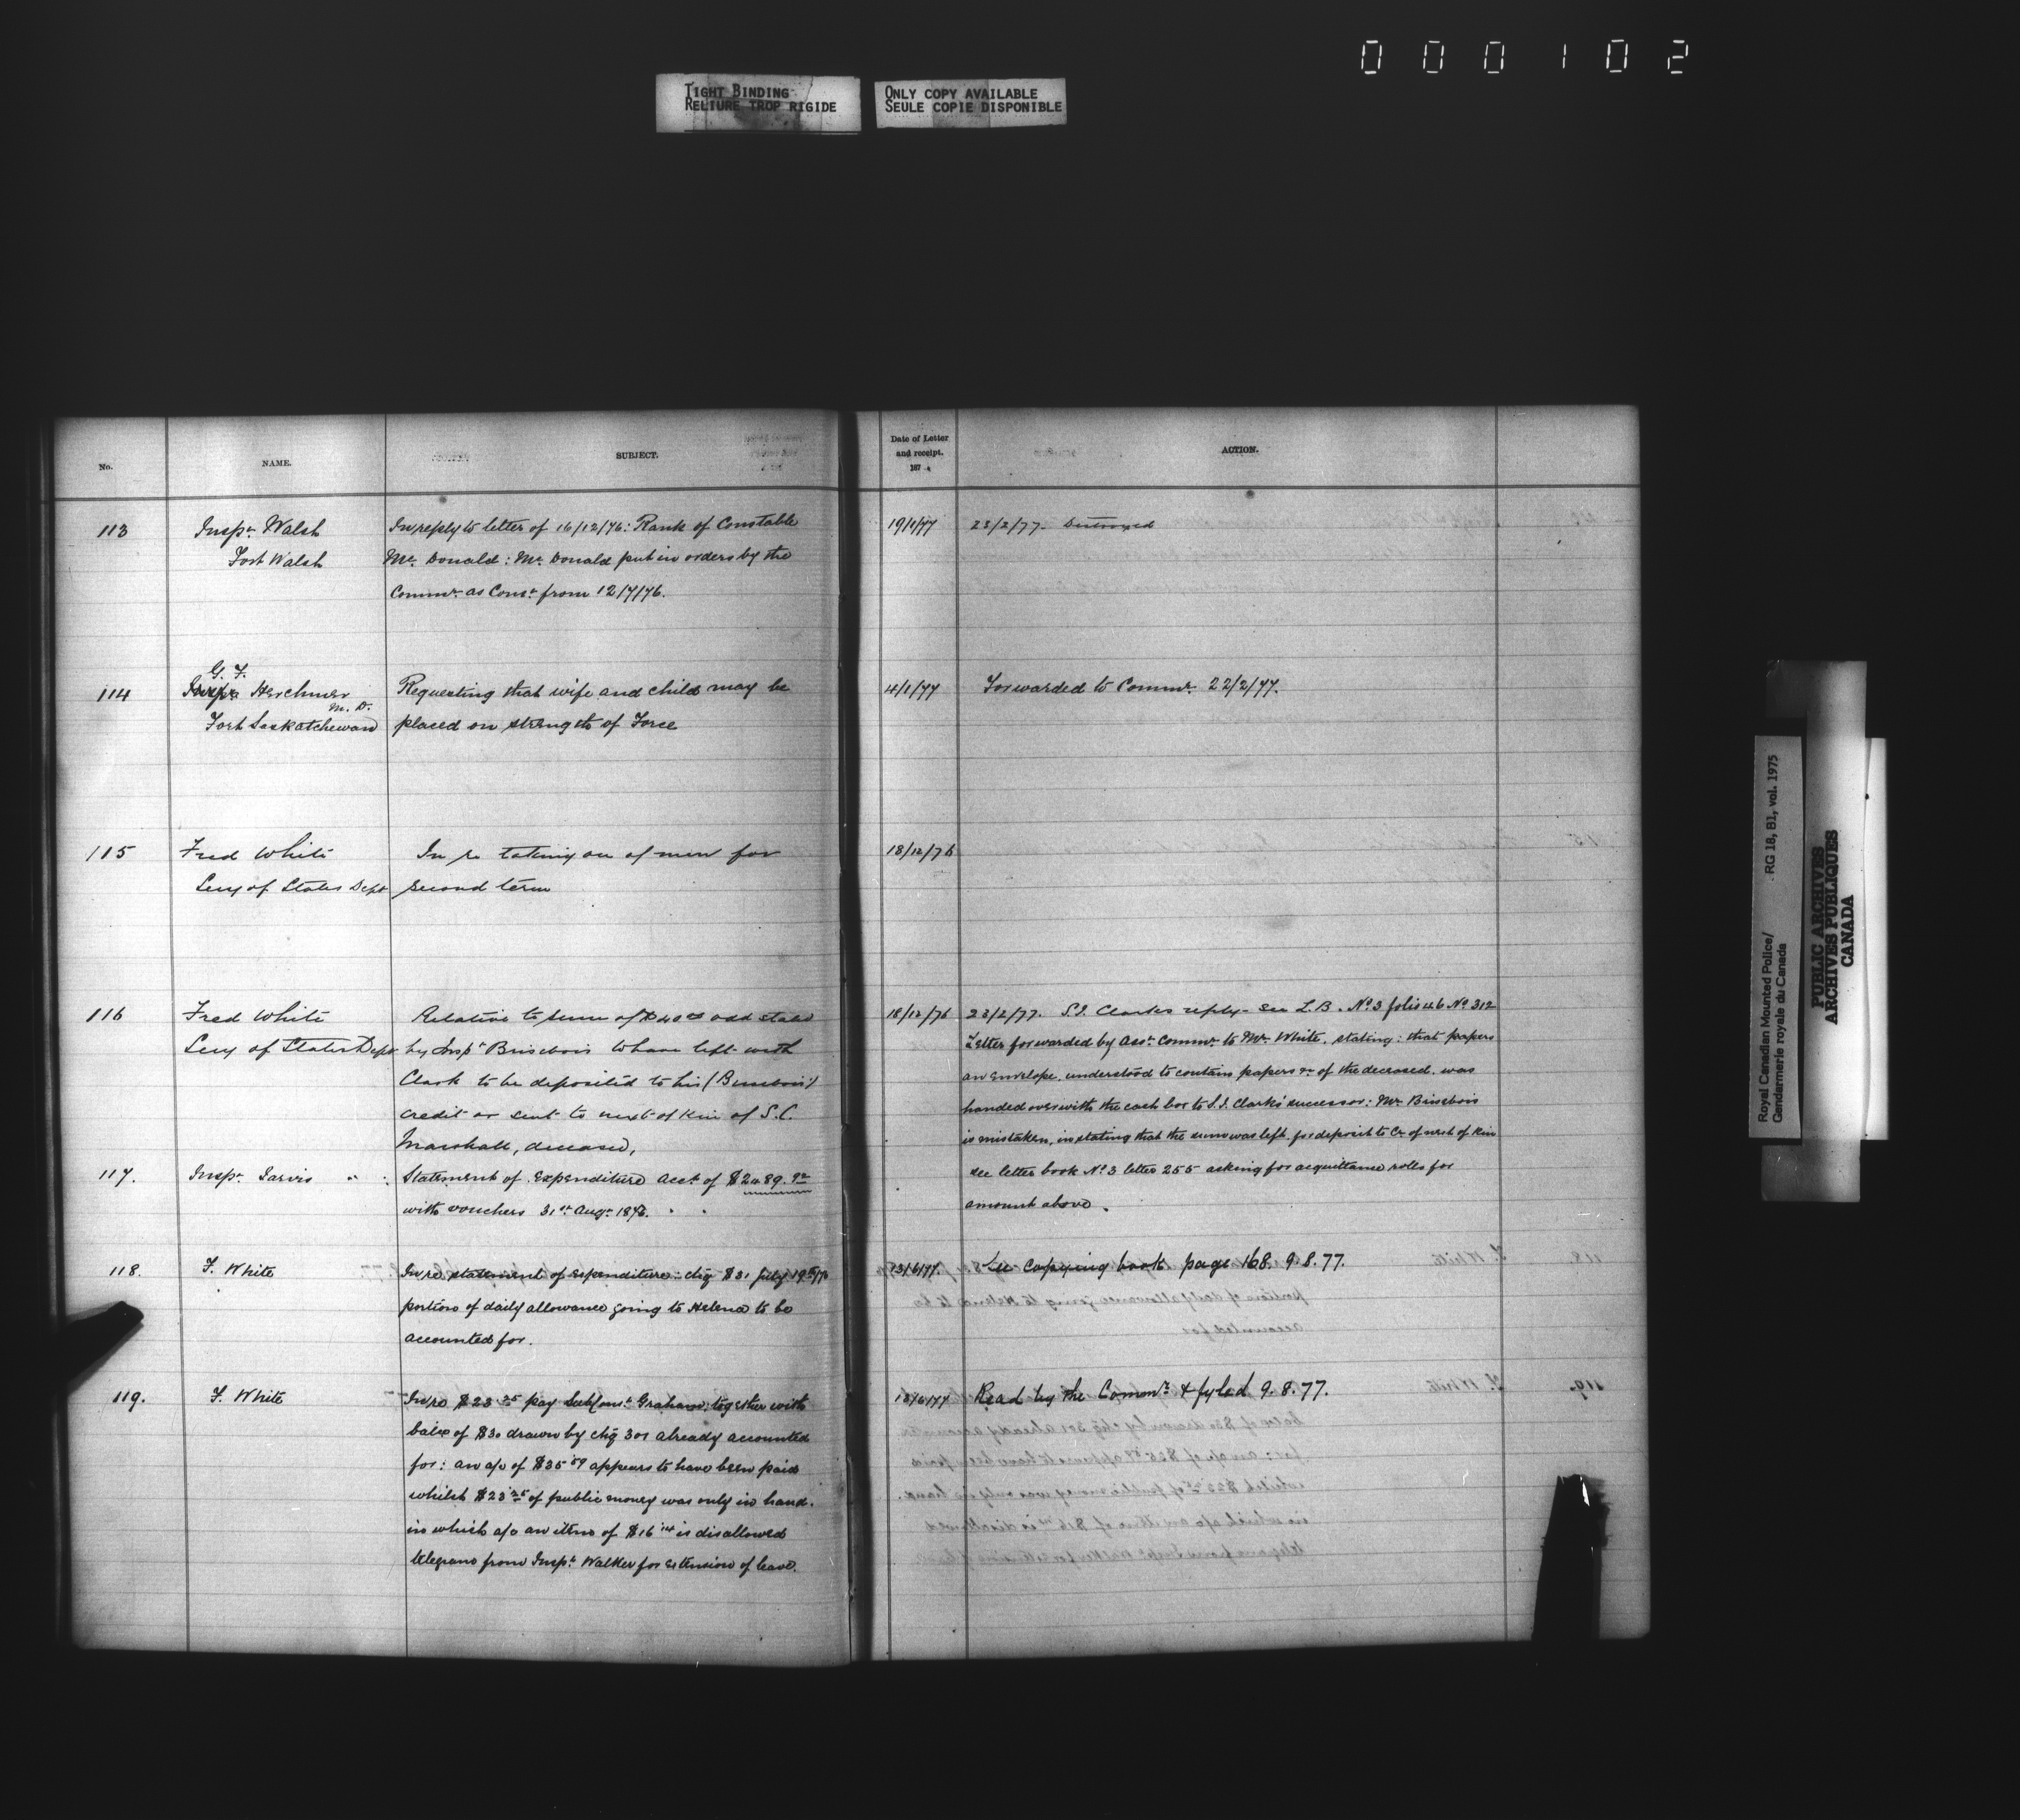 0 0 0 1 0 2
TIGHT BINDING
RELIURE TROP RIGIDE
ONLY COPY AVAILABLE
SEULE COPIE DISPONIBLE
No. NAME. SUBJECT. Date of Letter and receipt. 187 ACTION.
113 Inspr. Walsh In reply to letter of 16/12/76: Rank of Constable 19/1/77 23/2/77. Destroyed
Fort Walsh Mc. Donald: Mc. Donald put in orders by the
Commr. as Const. from 12/7/76.
G. F.
114 Herchmer Requesting that wife and child may be 4/1/77 Forwarded to Commr. 22/2/77.
M. D.
Fort Saskatchewan placed on strength of Force
115 Fred White In re taking on of men for 18/12/76
Secy of States Dept second term
116 Fred White Relative to sum of $40 00 odd stated 18/12/76 23/2/77. S.I. Clarks reply - See L.B. No 3 folio 46 No 312
Secy of States Dept by Inspr Brisebois to have left with Letter forwarded by Asst. Commr. to Mr. White, stating: that papers
Clark to be deposited to his (Brisebois') an envelope, understood to contain papers &c of the deceased, was
credit or sent to next of Kin of S.C. handed over with the cash box to S.I. Clarks' successor: Mr. Brisebois
Marshall, deceased, is mistaken, in stating that the sum was left for deposit to Cr of next of Kin
117. Inspr. Jarvis " " Statement of Expenditure acct of $2489.92 see letter book No 3 letter 255 asking for acquittance rolls for
with vouchers 31st Augt 1876. amount above.
118. F. White In re statement of expenditure: chq $31 July 19th/76 13/6/77. See Copying book page 168. 9.8.77.
portion of daily allowance going to Helena to be
accounted for.
119. F. White In re $23 25 pay Sub Const. Graham, together with 13/6/77 Read by the Commr. & fyled 9.8.77.
balce of $30 drawn by chq 301 already accounted
for: an a/c of $35 59 appears to have been paid
whilst $23 25 of public money was only in hand.
in which a/c an item of $16 14 is disallowed
telegram from Inspr. Walker for extension of leave.
Royal Canadian Mounted Police/ RG 18, B1, vol. 1975
Gendarmerie royale du Canada
PUBLIC ARCHIVES
ARCHIVES PUBLIQUES
CANADA